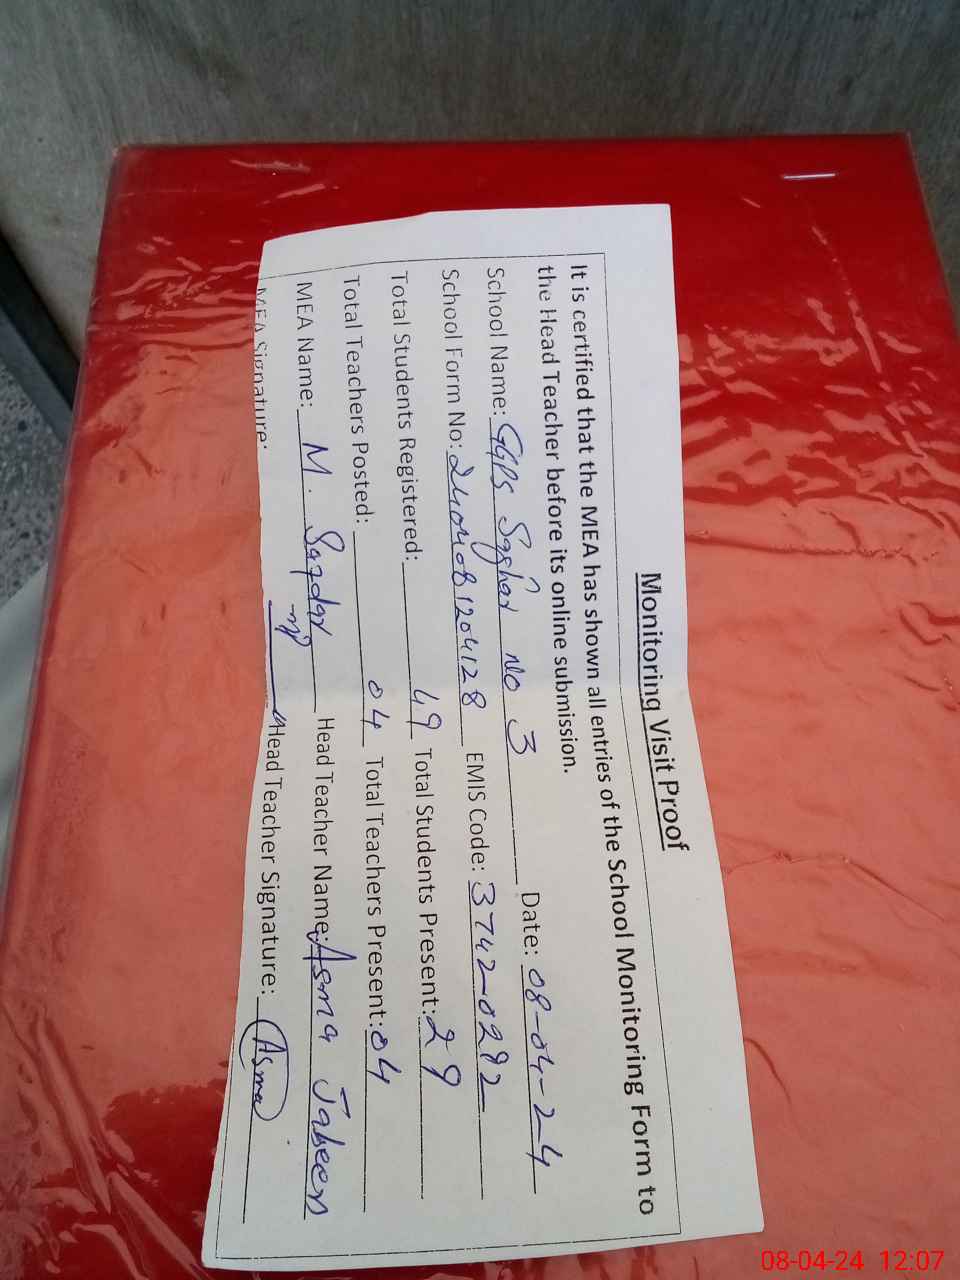 Monitoring Visit Proof
It is certified that the MEA has shown all entries of the School Monitoring Form to
the Head Teacher before its online submission.
School Name: GGPS Saghar No 3 Date: 08-04-24
School Form No: 2404081204128 EMIS Code: 3742-0292
Total Students Registered: 49 Total Students Present: 29
Total Teachers Posted: 04 Total Teachers Present: 04
MEA Name: M. Safdar Head Teacher Name: Asma Jabeen
MEA Signature: Head Teacher Signature: Asma
08-04-24 12:07